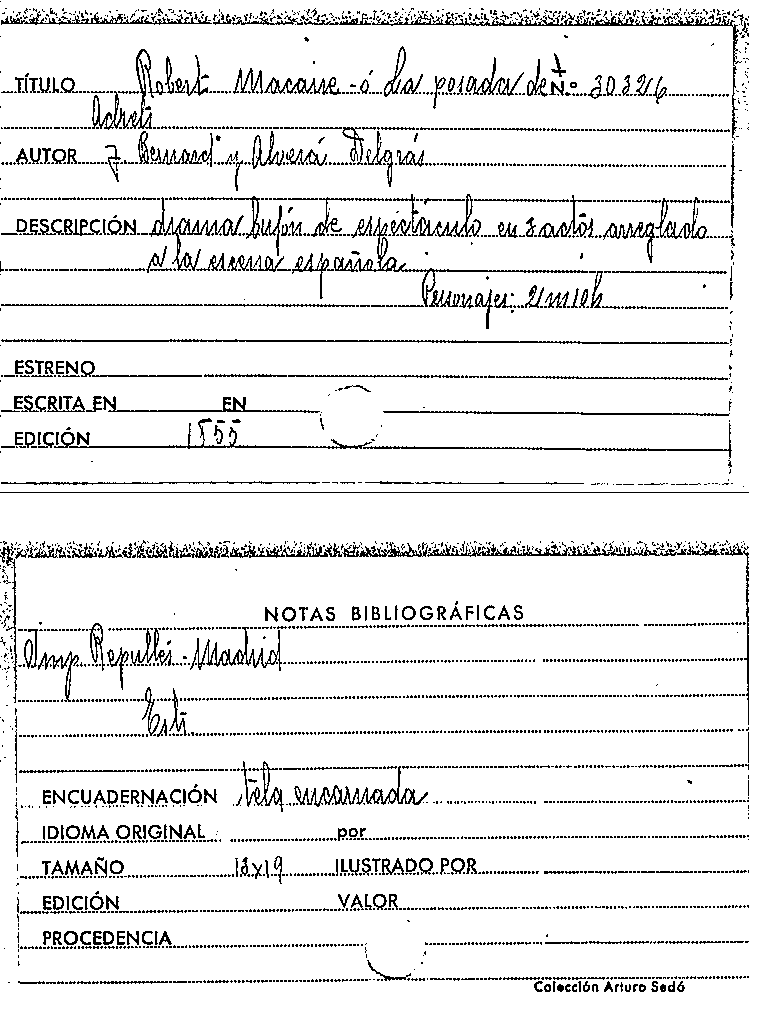 TÍTULO Robert Macaire - ó La posada de N.º 30326
Adrets
AUTOR J. Bernard y Alverá Delgrás
DESCRIPCIÓN drama bufón de espectáculo en 3 actos arreglado
a la escena española.
Personajes: 21m 10h
ESTRENO
ESCRITA EN EN
EDICIÓN 1855
NOTAS BIBLIOGRÁFICAS
Imp. Repullés - Madrid
ENCUADERNACIÓN tela encarnada
IDIOMA ORIGINAL por
TAMAÑO 13x19 ILUSTRADO POR
EDICIÓN VALOR
PROCEDENCIA
Colección Arturo Sedó